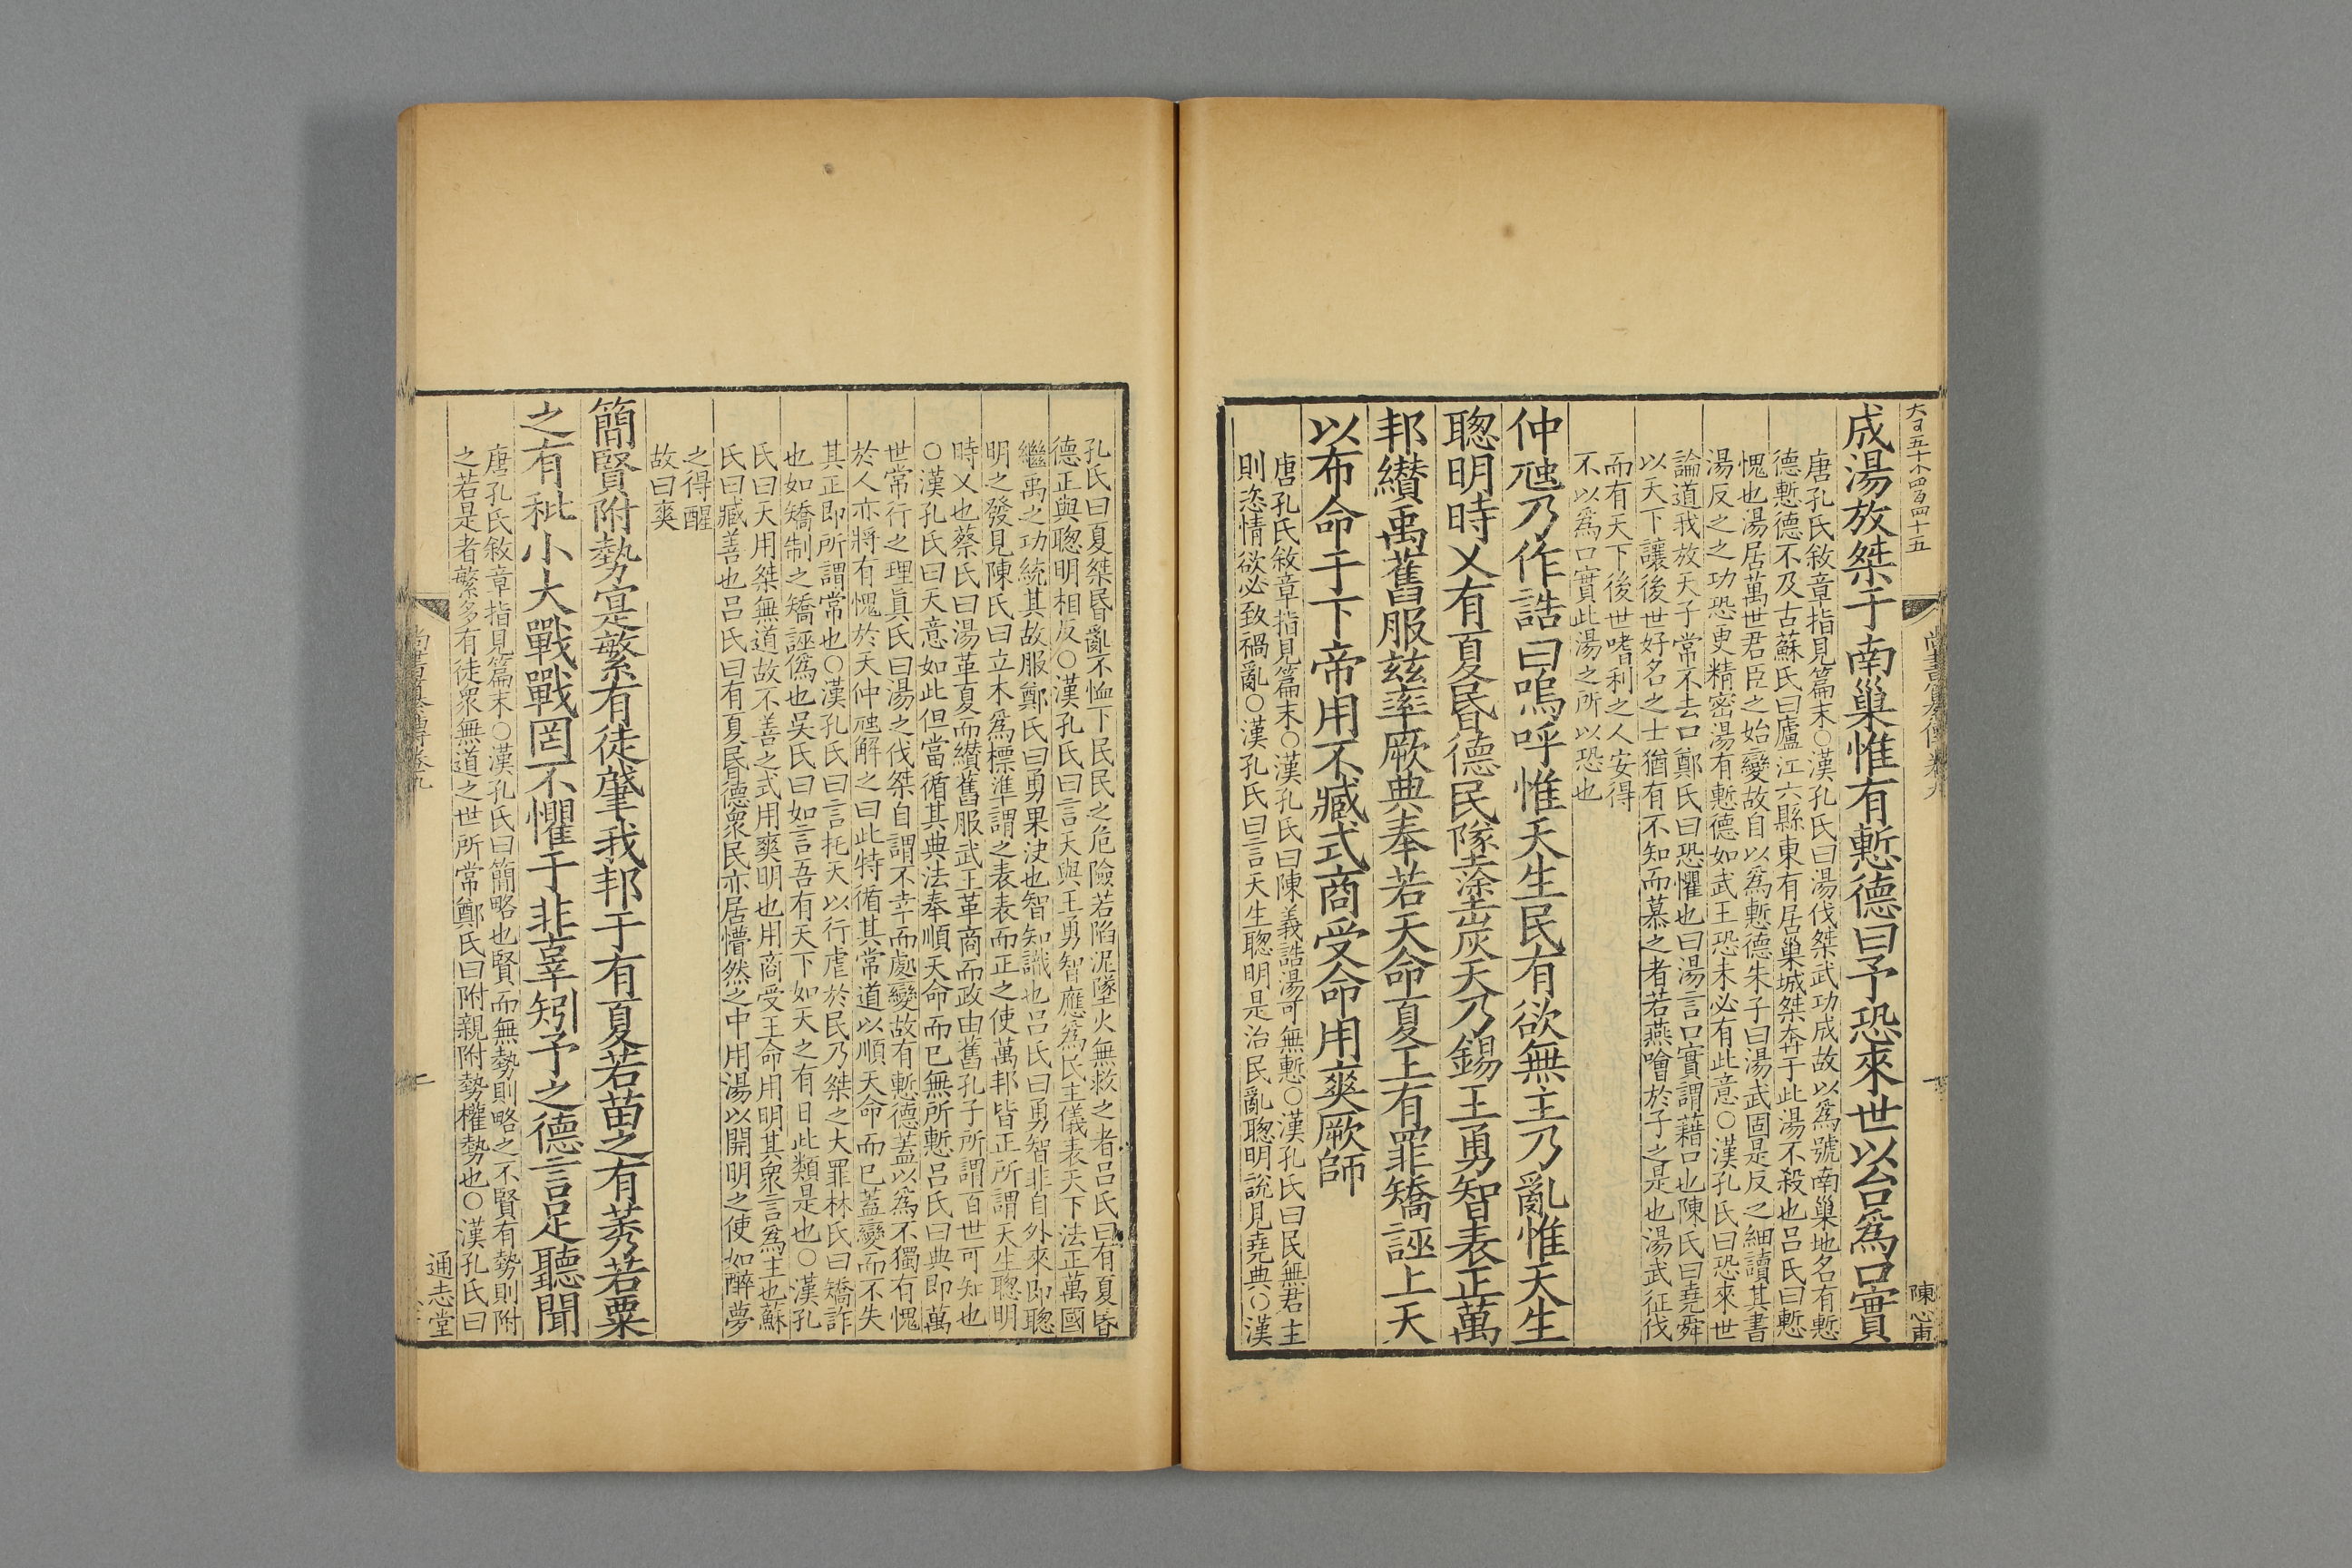 成湯放桀于南巢惟有慙德曰予恐來世以台爲口實
唐孔氏敘章指見篇末○漢孔氏曰湯伐桀武功成故以爲號南巢地名有慙
德慙德不及古蘇氏曰廬江六縣東有居巢城桀奔于此湯不殺也呂氏曰慙
愧也湯居萬世君臣之始變故自以爲慙德朱子曰湯武固是反之細讀其書
湯反之之功恐更精密湯有慙德如武王恐未必有此意○漢孔氏曰恐來世
論道我放天子常不去口鄭氏曰恐懼也曰湯言口實謂藉口也陳氏曰堯舜
以天下讓後世好名之士猶有不知而慕之者若燕噲於子之是也湯武征伐
而有天下後世嗜利之人安得
不以爲口實此湯之所以恐也
仲虺乃作誥曰嗚呼惟天生民有欲無主乃亂惟天生
聰明時乂有夏昬德民隊塗炭天乃錫王勇智表正萬
邦纘禹舊服兹率厥典奉若天命夏王有罪矯誣上天
以布命于下帝用不臧式商受命用爽厥師
唐孔氏敘章指見篇末○漢孔氏曰陳義誥湯可無慙○漢孔氏曰民無君主
則恣情欲必致禍亂○漢孔氏曰言天生聰明是治民亂聰明說見堯典○漢
陳心甫
孔氏曰夏桀昬亂不恤下民民之危險若陷泥墜火無救之者呂氏曰有夏昏
德正與聰明相反○漢孔氏曰言天與王勇智應爲民主儀表天下法正萬國
繼禹之功統其故服鄭氏曰勇果決也智知識也呂氏曰勇智非自外來即聰
明之發見陳氏曰立木爲標準謂之表表而正之使萬邦皆正所謂天生聰明
時乂也蔡氏曰湯革夏而纘舊服武王革商而政由舊孔子所謂百世可知也
○漢孔氏曰天意如此但當循其典法奉順天命而已無所慙呂氏曰典即萬
世常行之理眞氏曰湯之伐桀自謂不幸而處變故有慙德蓋以爲不獨有愧
於人亦將有愧於天仲虺解之曰此特循其常道以順天命而已蓋變而不失
其正即所謂常也○漢孔氏曰言托天以行虐於民乃桀之大罪林氏曰矯詐
也如矯制之矯誣僞也吳氏曰如言吾有天下如天之有日此類是也○漢孔
氏曰天用桀無道故不善之式用爽明也用商受王命用明其衆言爲主也蘇
氏曰臧善也呂氏曰有夏昬德衆民亦居懵然之中用湯以開明之使如醉夢
之得醒
故曰爽
簡賢附勢寔繁有徒肇我邦于有夏若苗之有莠若粟
之有秕小大戰戰罔不懼于非辜矧予之德言足聽聞
唐孔氏敘章指見篇末○漢孔氏曰簡略也賢而無勢則略之不賢有勢則附
之若是者繁多有徒衆無道之世所常鄭氏曰附親附勢權勢也○漢孔氏曰
通志堂